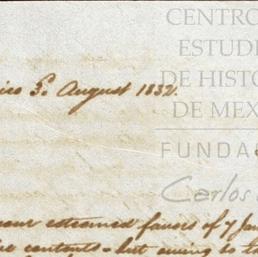 CENTRO
ESTUDI
DE HISTO
DE MEX
FUNDA
Carlos
ico 3. August 1832.
your esteemed favors of 7 Jan
contents - but owing to